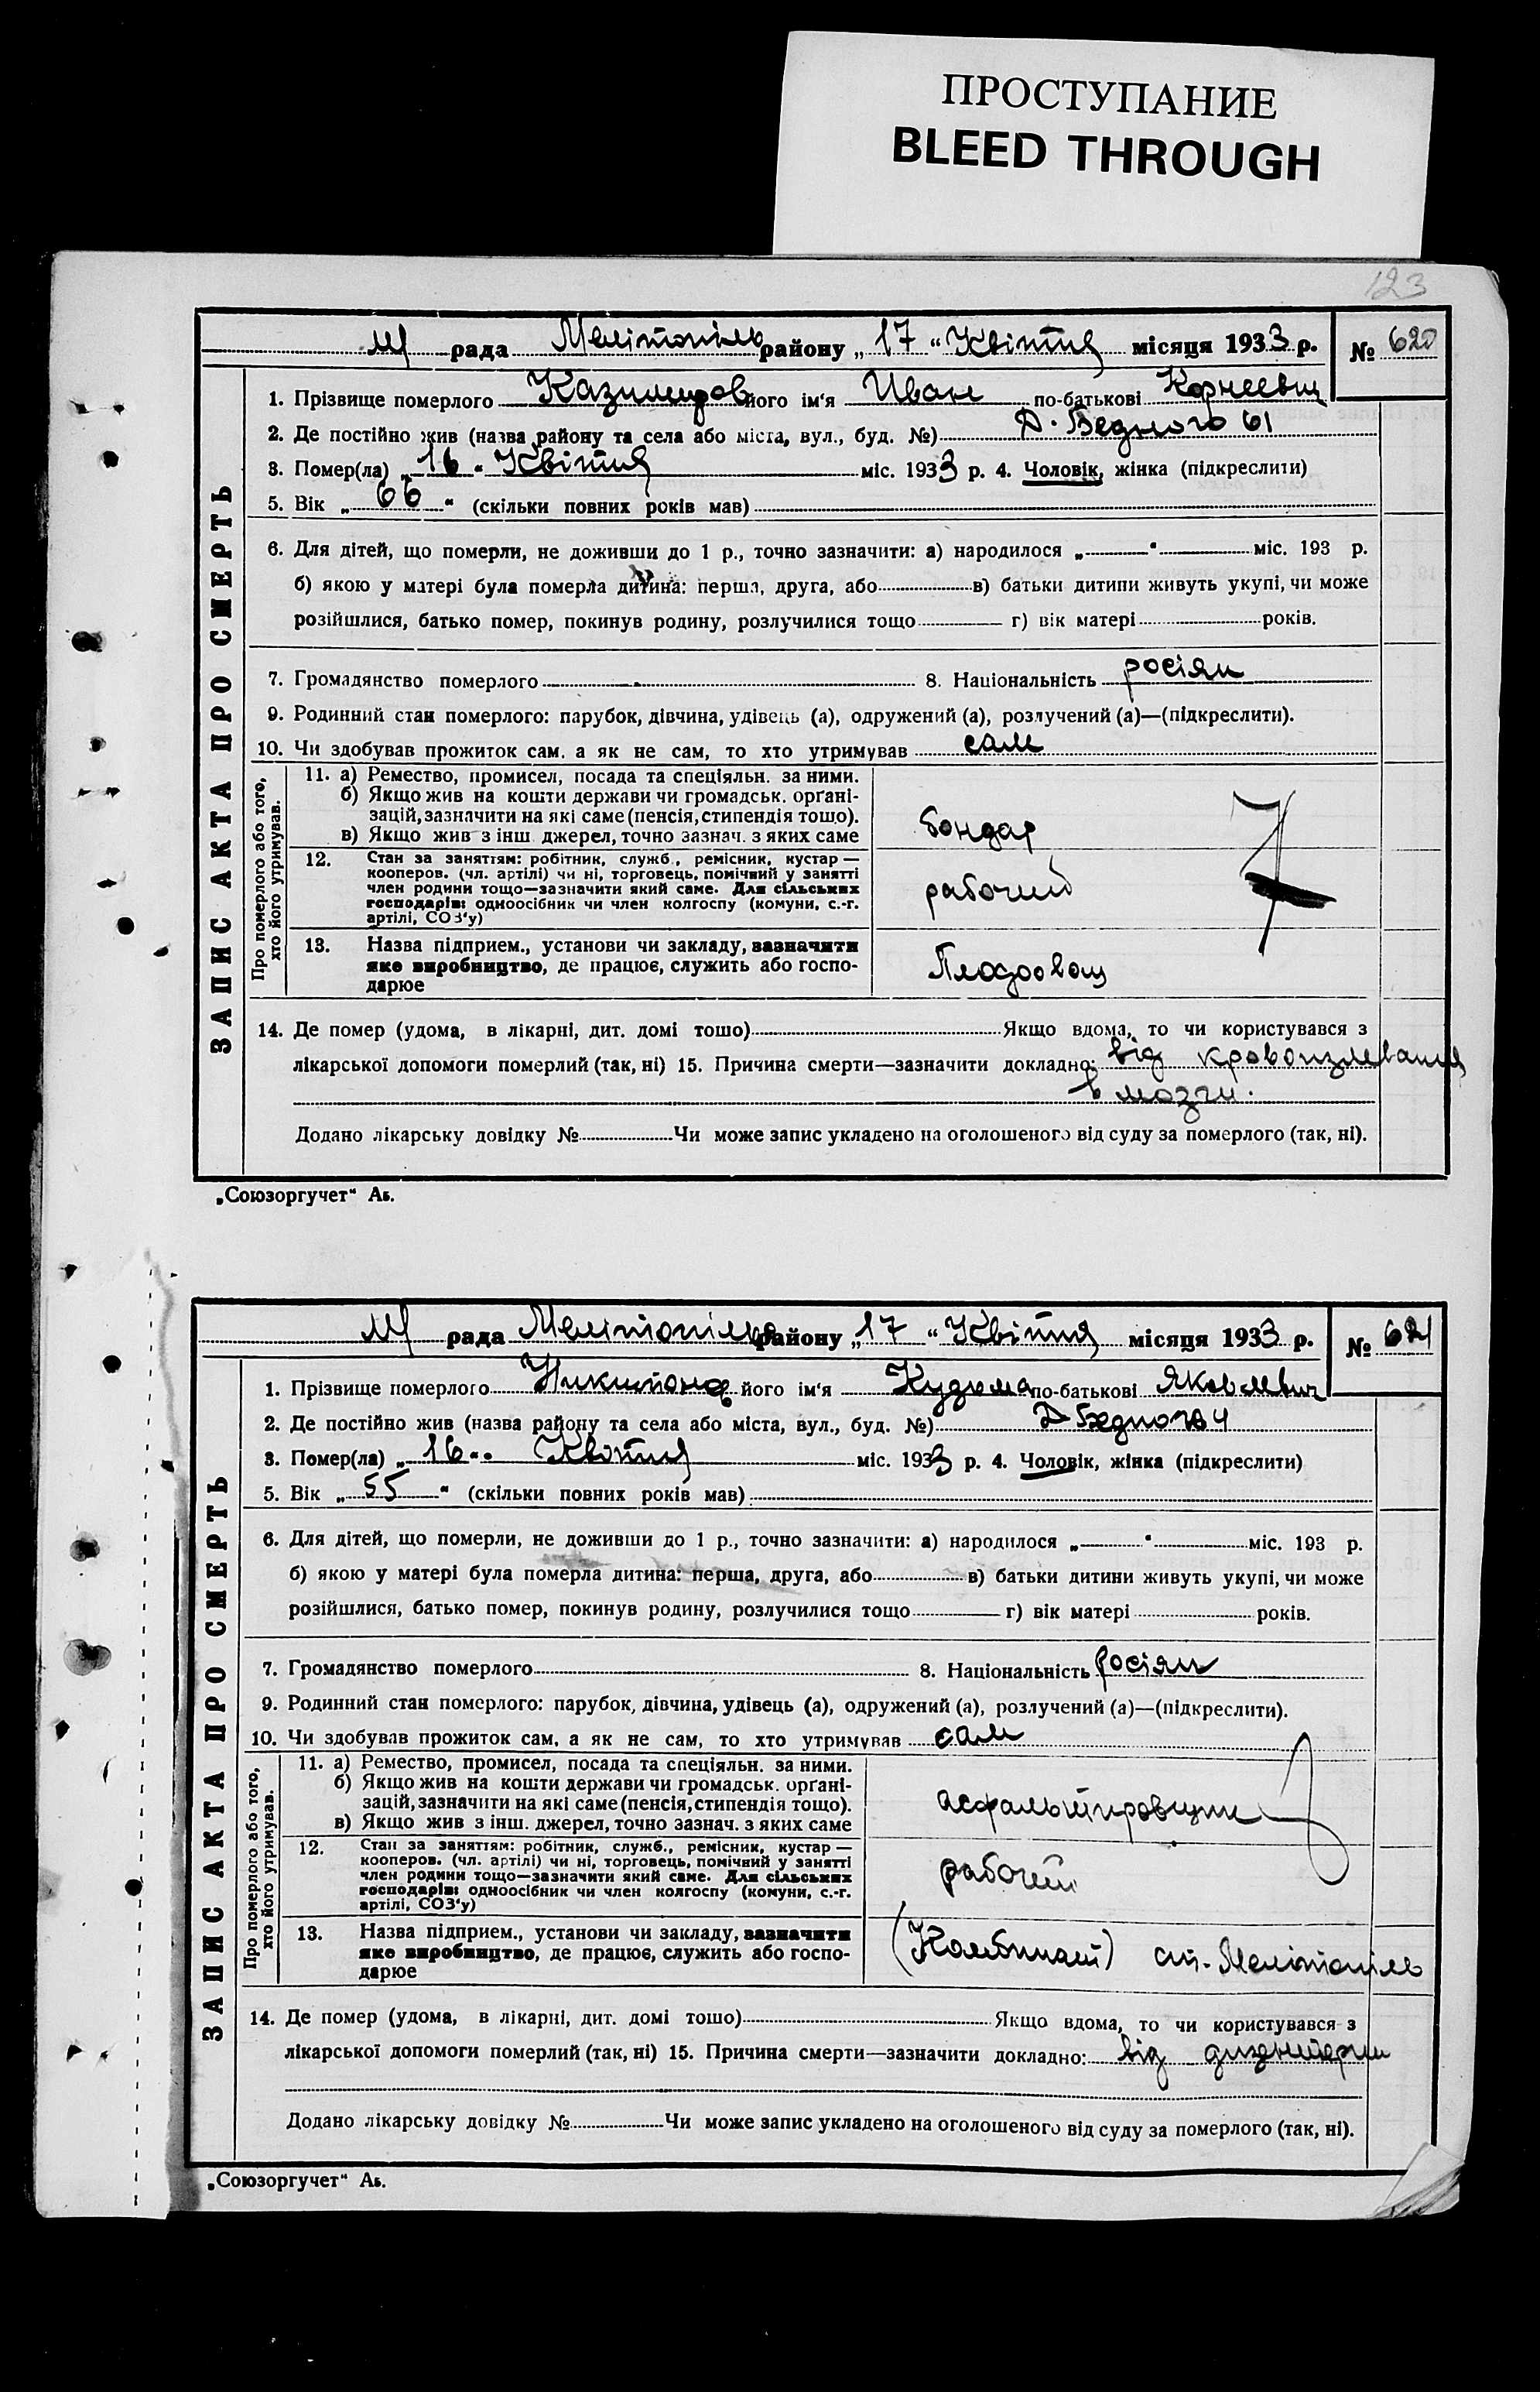 ПРОСТУПАНИЕ
BLEED THROUGH
123
рада Мелітопіль району „17“ Квітня місяця 1933 р. № 620
ЗАПИС АКТА ПРО СМЕРТЬ
1. Прізвище померлого Казимиров його ім'я Иван по-батькові Корнеевич
2. Де постійно жив (назва району та села або міста, вул., буд. №) Д. Бедного 61
3. Помер(ла) „16“ Квітня міс. 1933 р. 4. Чоловік, жінка (підкреслити)
5. Вік „66“ (скільки повних років мав)
6. Для дітей, що померли, не доживши до 1 р., точно зазначити: а) народилося „ “ міс. 193 р.
б) якою у матері була померла дитина: перша, друга, або в) батьки дитини живуть укупі, чи може
розійшлися, батько помер, покинув родину, розлучилися тощо г) вік матері років.
7. Громадянство померлого 8. Національність росіян
9. Родинний стан померлого: парубок, дівчина, удівець (а), одружений (а), розлучений (а)—(підкреслити).
10. Чи здобував прожиток сам, а як не сам, то хто утримував сам
Про померлого або того,
хто його утримував.
11. а) Ремество, промисел, посада та спеціяльн. за ними.
б) Якщо жив на кошти держави чи громадськ. орґані-
зацій, зазначити на які саме (пенсія, стипендія тощо).
в) Якщо жив з інш. джерел, точно зазнач. з яких саме
бондар
12. Стан за заняттям: робітник, служб., ремісник, кустар—
кооперов. (чл. артілі) чи ні, торговець, помічний у занятті
член родини тощо—зазначити який саме. Для сільських
господарів: одноосібник чи член колгоспу (комуни, с.-г.
артілі, СОЗ'у)
рабочий
7
13. Назва підприєм., установи чи закладу, зазначити
яке виробництво, де працює, служить або госпо-
дарюе
14. Де помер (удома, в лікарні, дит. домі тощо) Якщо вдома, то чи користувався з
лікарської допомоги померлий (так, ні) 15. Причина смерти—зазначити докладно: від кровоизлевания
в мозги.
Додано лікарську довідку № Чи може запис укладено на оголошеного від суду за померлого (так, ні).
„Союзоргучет“ Аб.
рада Мелітопільс району „17“ Квітня місяця 1933 р. № 621
ЗАПИС АКТА ПРО СМЕРТЬ
1. Прізвище померлого його ім'я Кудьма по-батькові Яковлевич
2. Де постійно жив (назва району та села або міста, вул., буд. №) Д Бедного
3. Помер(ла) „16“ Квітня міс. 1933 р. 4. Чоловік, жінка (підкреслити)
5. Вік „55“ (скільки повних років мав)
6. Для дітей, що померли, не доживши до 1 р., точно зазначити: а) народилося „ “ міс. 193 р.
б) якою у матері була померла дитина: перша, друга, або в) батьки дитини живуть укупі, чи може
розійшлися, батько помер, покинув родину, розлучилися тощо г) вік матері років.
7. Громадянство померлого 8. Національність росіян
9. Родинний стан померлого: парубок, дівчина, удівець (а), одружений (а), розлучений (а)—(підкреслити).
10. Чи здобував прожиток сам, а як не сам, то хто утримував сам
Про померлого або того,
хто його утримував.
11. а) Ремество, промисел, посада та спеціяльн. за ними.
б) Якщо жив на кошти держави чи громадськ. орґані-
зацій, зазначити на які саме (пенсія, стипендія тощо).
в) Якщо жив з інш. джерел, точно зазнач. з яких саме
асфальтировщик
12. Стан за заняттям: робітник, служб., ремісник, кустар—
кооперов. (чл. артілі) чи ні, торговець, помічний у занятті
член родини тощо—зазначити який саме. Для сільських
господарів: одноосібник чи член колгоспу (комуни, с.-г.
артілі, СОЗ'у)
рабочий
13. Назва підприєм., установи чи закладу, зазначити
яке виробництво, де працює, служить або госпо-
дарюе
(Комбинат) ст. Мелітопіль
14. Де помер (удома, в лікарні, дит. домі тощо) Якщо вдома, то чи користувався з
лікарської допомоги померлий (так, ні) 15. Причина смерти—зазначити докладно: від дизентерии
Додано лікарську довідку № Чи може запис укладено на оголошеного від суду за померлого (так, ні).
„Союзоргучет“ Аб.